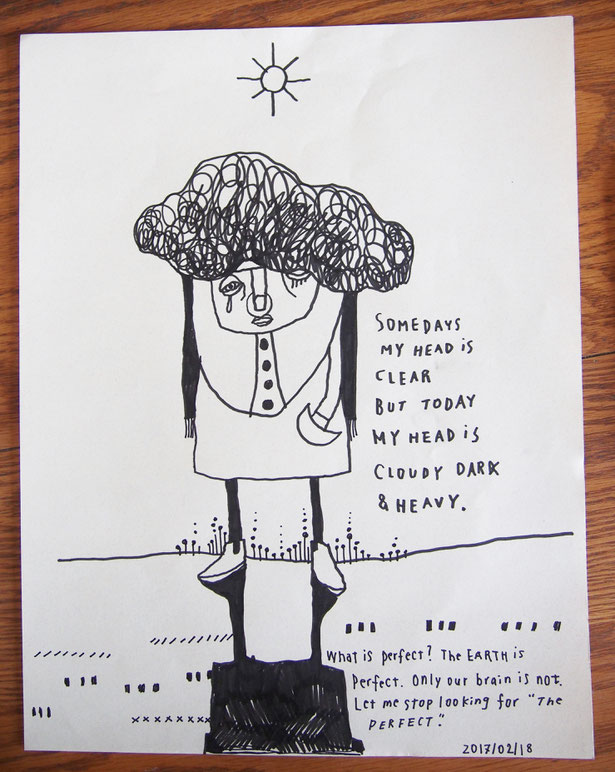 SOMEDAYS
MY HEAD iS
CLEAR
BUT TODAY
MY HEAD iS
CLOUDY DARK
& HEAVY.
What is perfect? The EARTH is
Perfect. Only our brain is not.
Let me stop looking for "THE
PERFECT."
2017/02/18